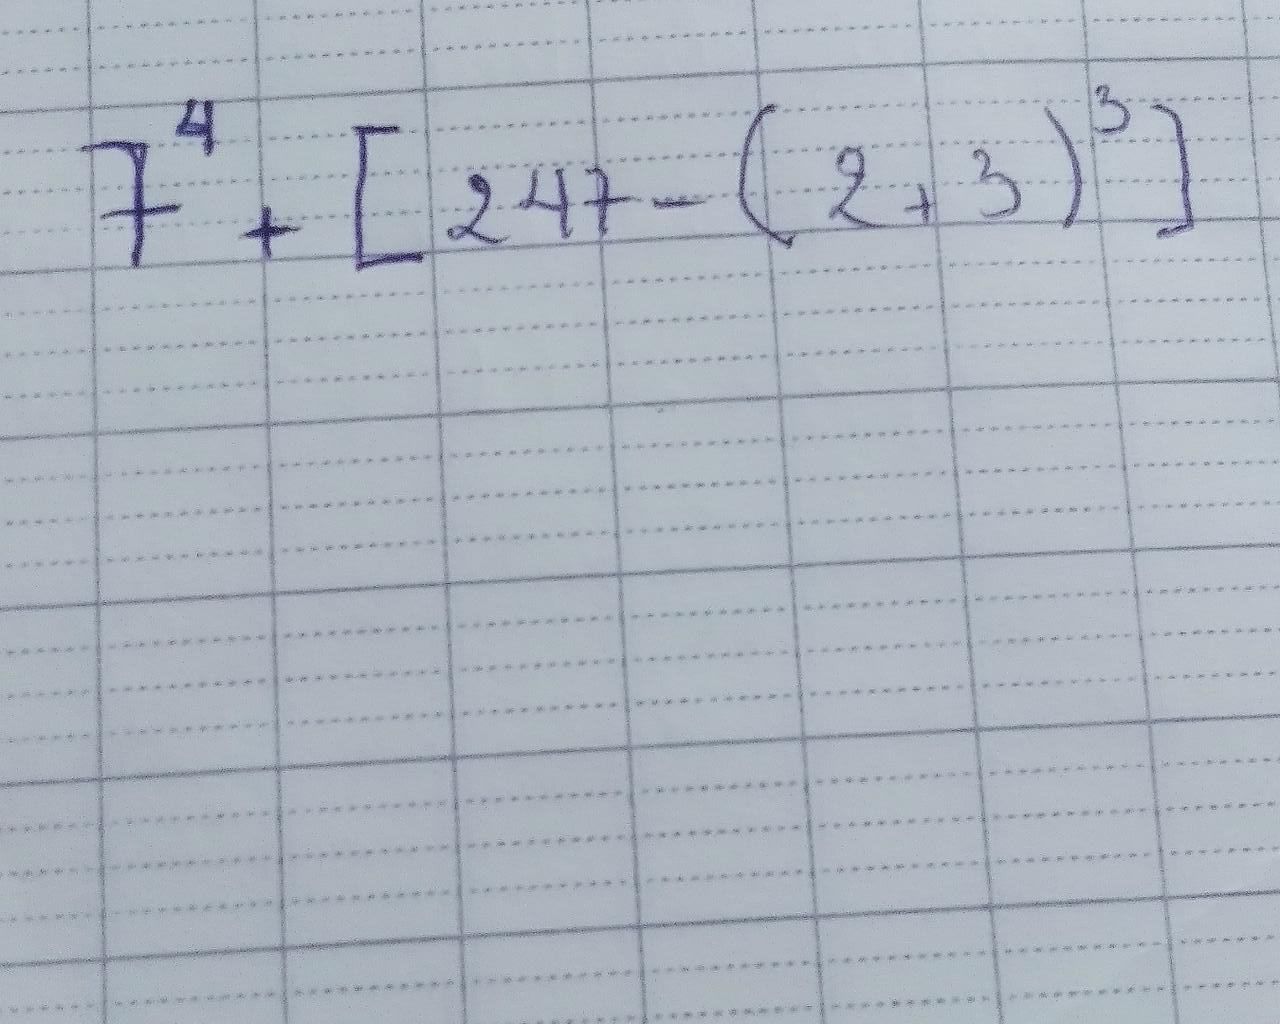 7⁴ + [247 - (2 + 3)³]